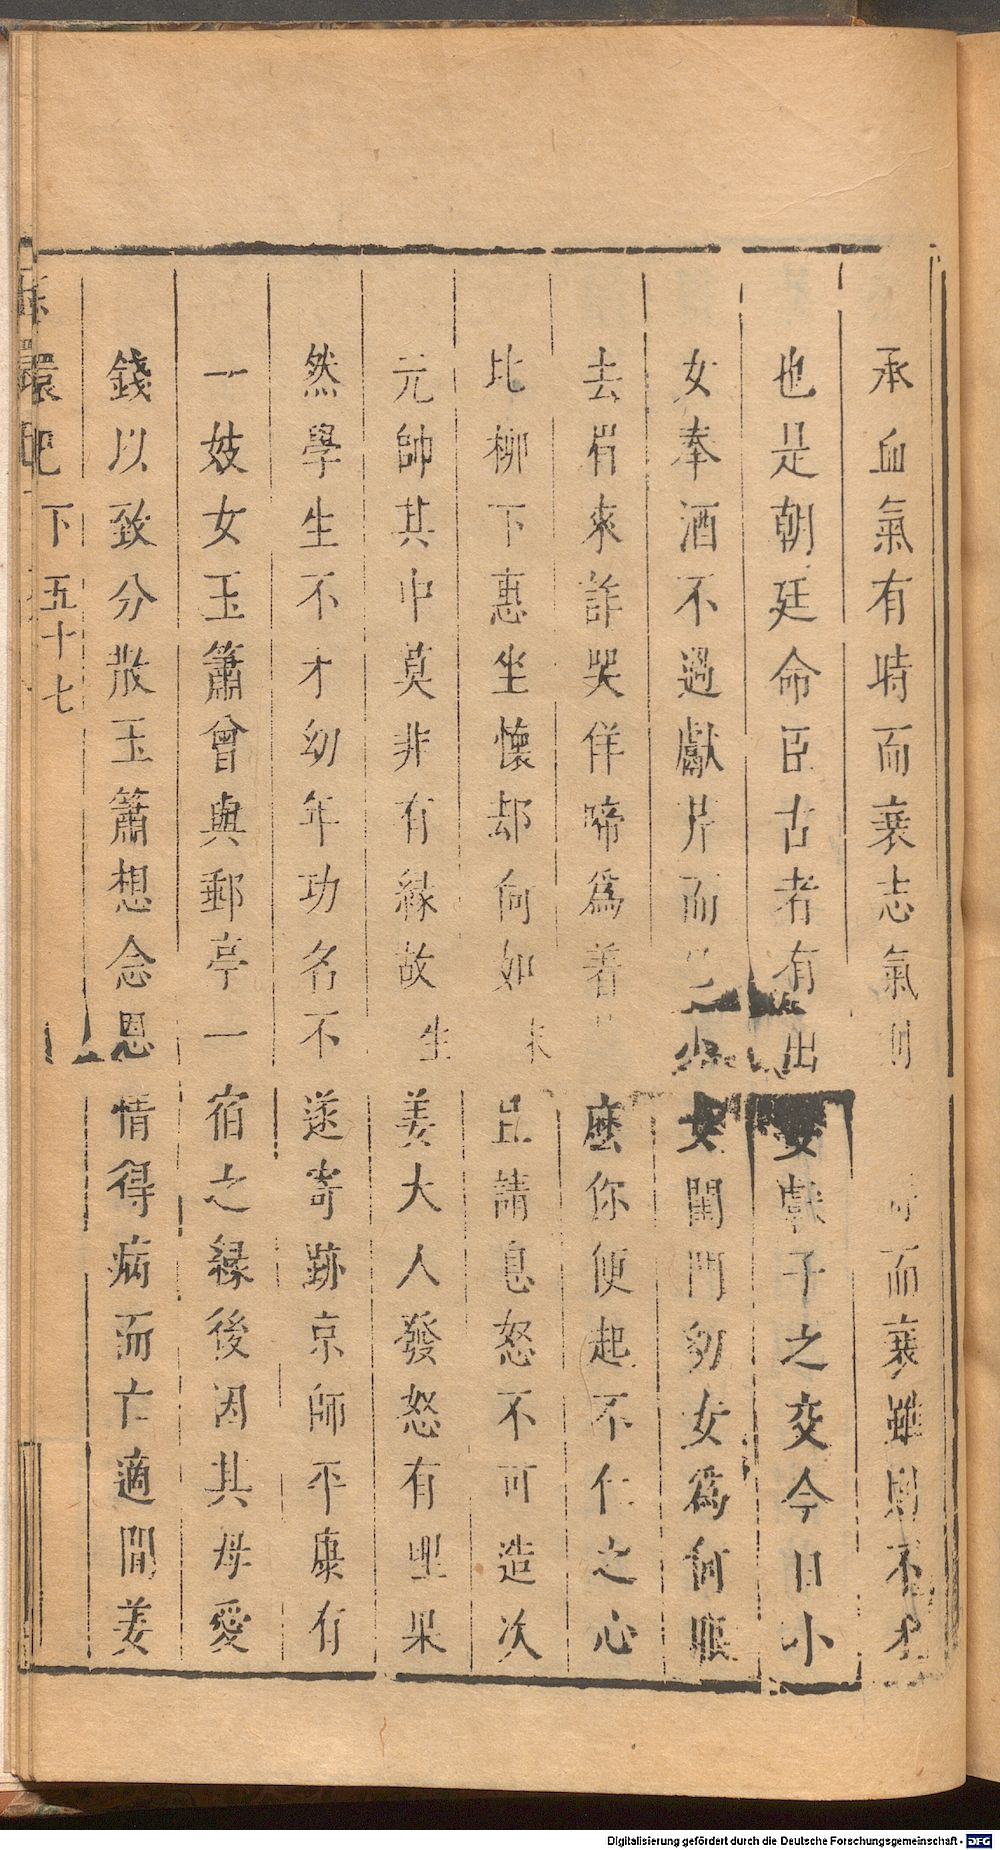 承血氣有時而衰志氣則時而衰雖則不才
也是朝廷命臣古者有出妻獻子之交今日小
女奉酒不過獻芹而已少女閨門幼女為何眼
去眉來詐哭佯啼為着麼你便起不仁之心
比柳下惠坐懷却何如末丑請息怒不可造次
元帥其中莫非有緣故生姜大人發怒有理果
然學生不才幼年功名不遂寄跡京師平康有
一妓女玉簫曾與郵亭一宿之緣後因其母愛
錢以致分散玉簫想念恩情得病而亡適間姜
環記 下 五十七
Digitalisierung gefördert durch die Deutsche Forschungsgemeinschaft - DFG